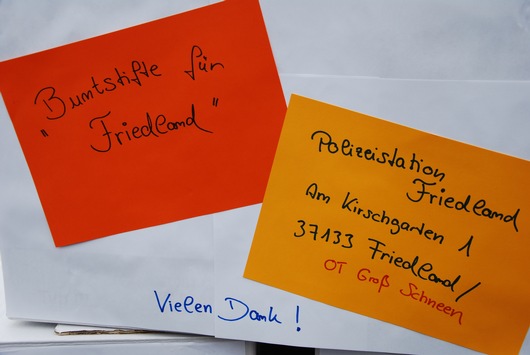 Buntstifte für
"Friedland"
Polizeistation
Friedland
Am Kirschgarten 1
37133 Friedland/
OT Groß Schneen
Vielen Dank!